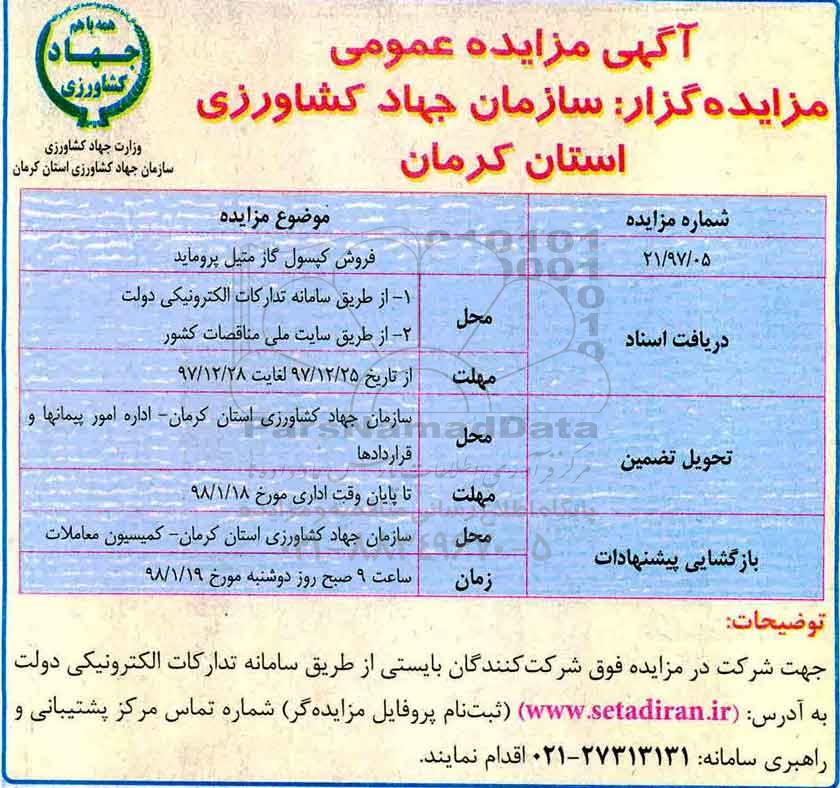 همه با هم
جهاد
کشاورزی
وزارت جهاد کشاورزی
سازمان جهاد کشاورزی استان کرمان
آگهی مزایده عمومی
مزایده‌گزار: سازمان جهاد کشاورزی
استان کرمان
شماره مزایده
موضوع مزایده
۲۱/۹۷/۰۵
فروش کپسول گاز متیل پروماید
دریافت اسناد
محل
۱- از طریق سامانه تدارکات الکترونیکی دولت
۲- از طریق سایت ملی مناقصات کشور
مهلت
از تاریخ ۹۷/۱۲/۲۵ لغایت ۹۷/۱۲/۲۸
تحویل تضمین
محل
سازمان جهاد کشاورزی استان کرمان- اداره امور پیمانها و
قراردادها
مهلت
تا پایان وقت اداری مورخ ۹۸/۱/۱۸
بازگشایی پیشنهادات
محل
سازمان جهاد کشاورزی استان کرمان- کمیسیون معاملات
زمان
ساعت ۹ صبح روز دوشنبه مورخ ۹۸/۱/۱۹
ParsNamadData
توضیحات:
جهت شرکت در مزایده فوق شرکت‌کنندگان بایستی از طریق سامانه تدارکات الکترونیکی دولت
به آدرس: (www.setadiran.ir) (ثبت‌نام پروفایل مزایده‌گر) شماره تماس مرکز پشتیبانی و
راهبری سامانه: ۲۷۳۱۳۱۳۱-۰۲۱ اقدام نمایند.